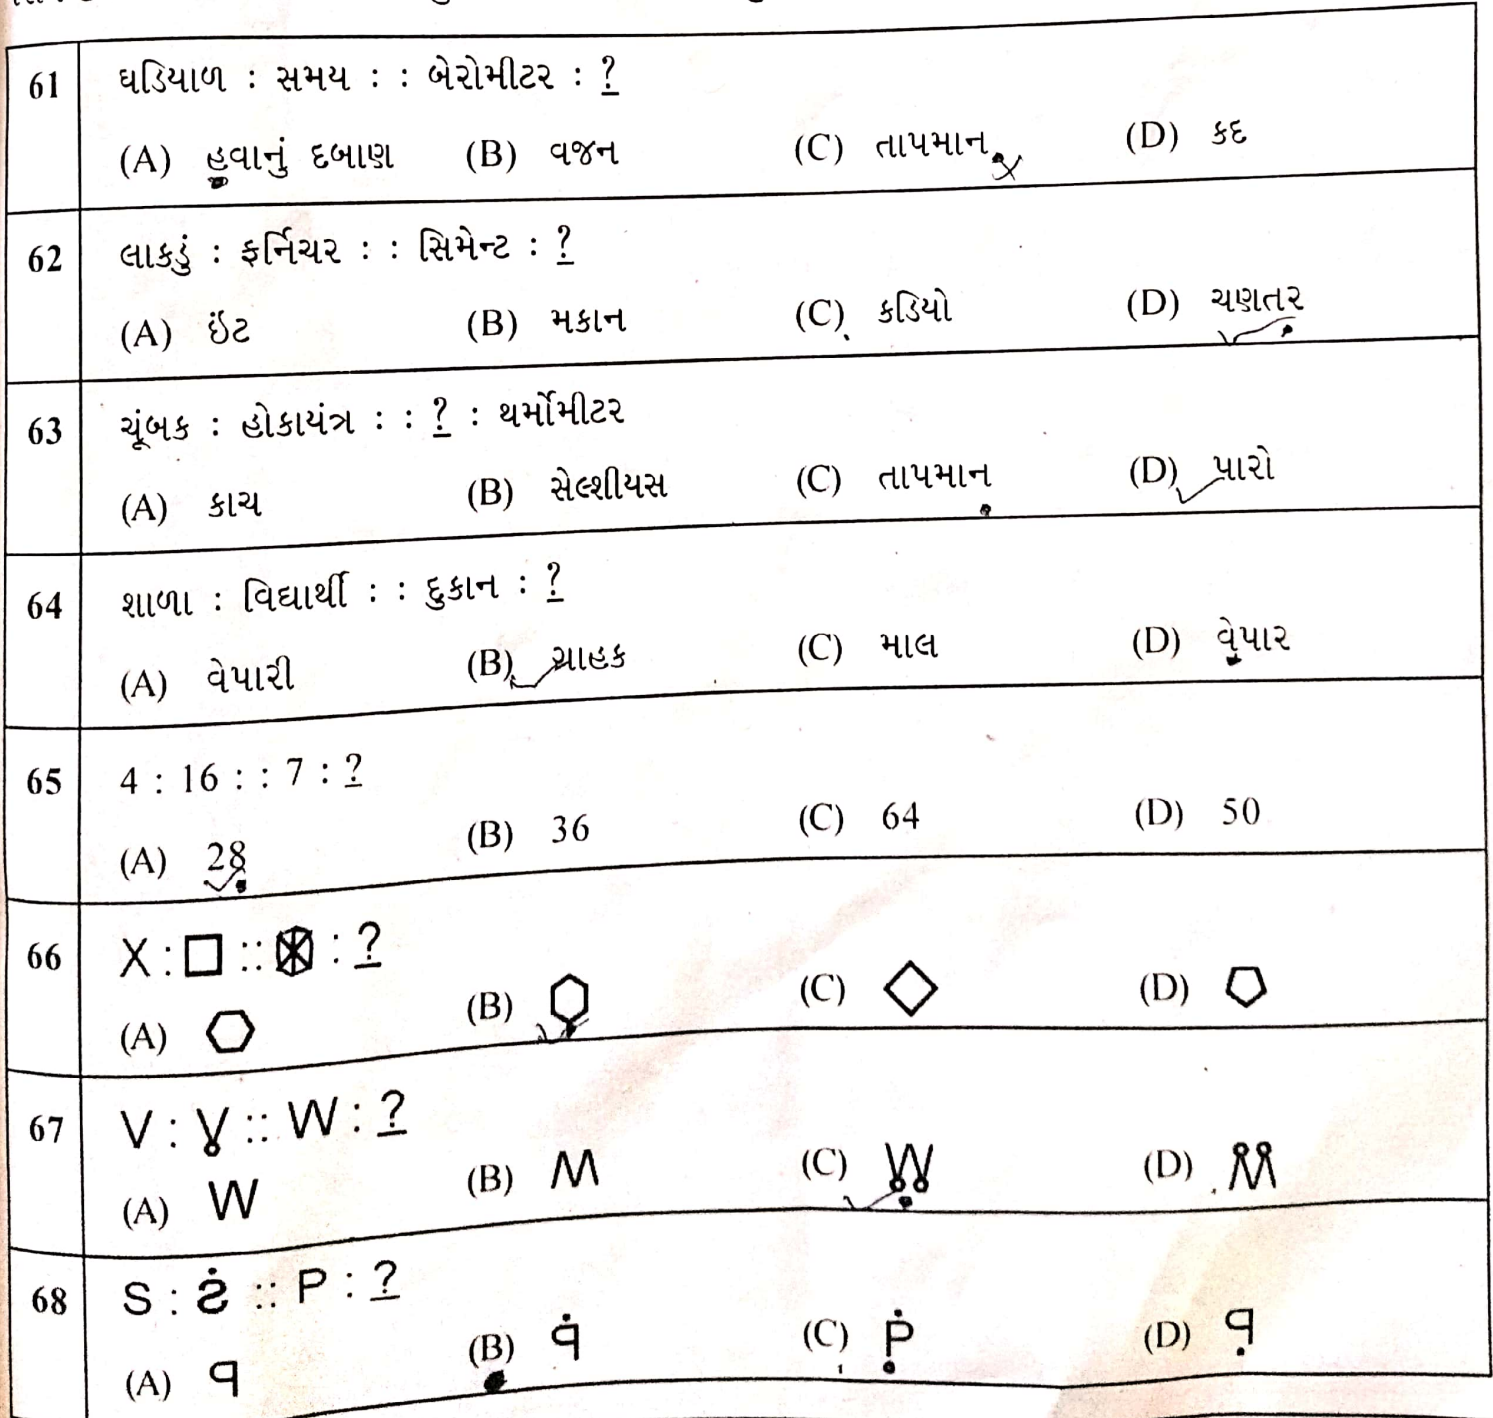 61 ઘડિયાળ : સમય : : બેરોમીટર : ?
(A) હવાનું દબાણ (B) વજન (C) તાપમાન (D) કદ
62 લાકડું : ફર્નિચર : : સિમેન્ટ : ?
(A) ઇંટ (B) મકાન (C) કડિયો (D) ચણતર
63 ચૂંબક : હોકાયંત્ર : : ? : થર્મોમીટર
(A) કાચ (B) સેલ્શીયસ (C) તાપમાન (D) પારો
64 શાળા : વિદ્યાર્થી : : દુકાન : ?
(A) વેપારી (B) ગ્રાહક (C) માલ (D) વેપાર
65 4 : 16 : : 7 : ?
(A) 28 (B) 36 (C) 64 (D) 50
66 X : □ :: : ?
(A) (B) (C) (D)
67 V : :: W : ?
(A) W (B) M (C) (D)
68 S : :: P : ?
(A) (B) (C) Ṗ (D)